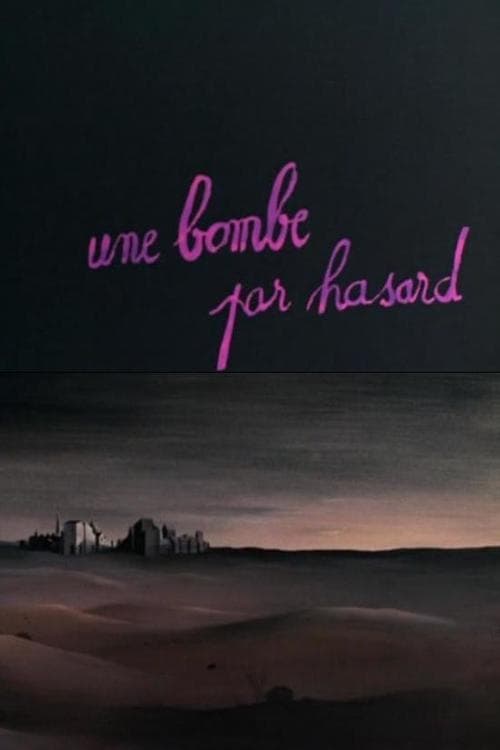 une bombe
par hasard